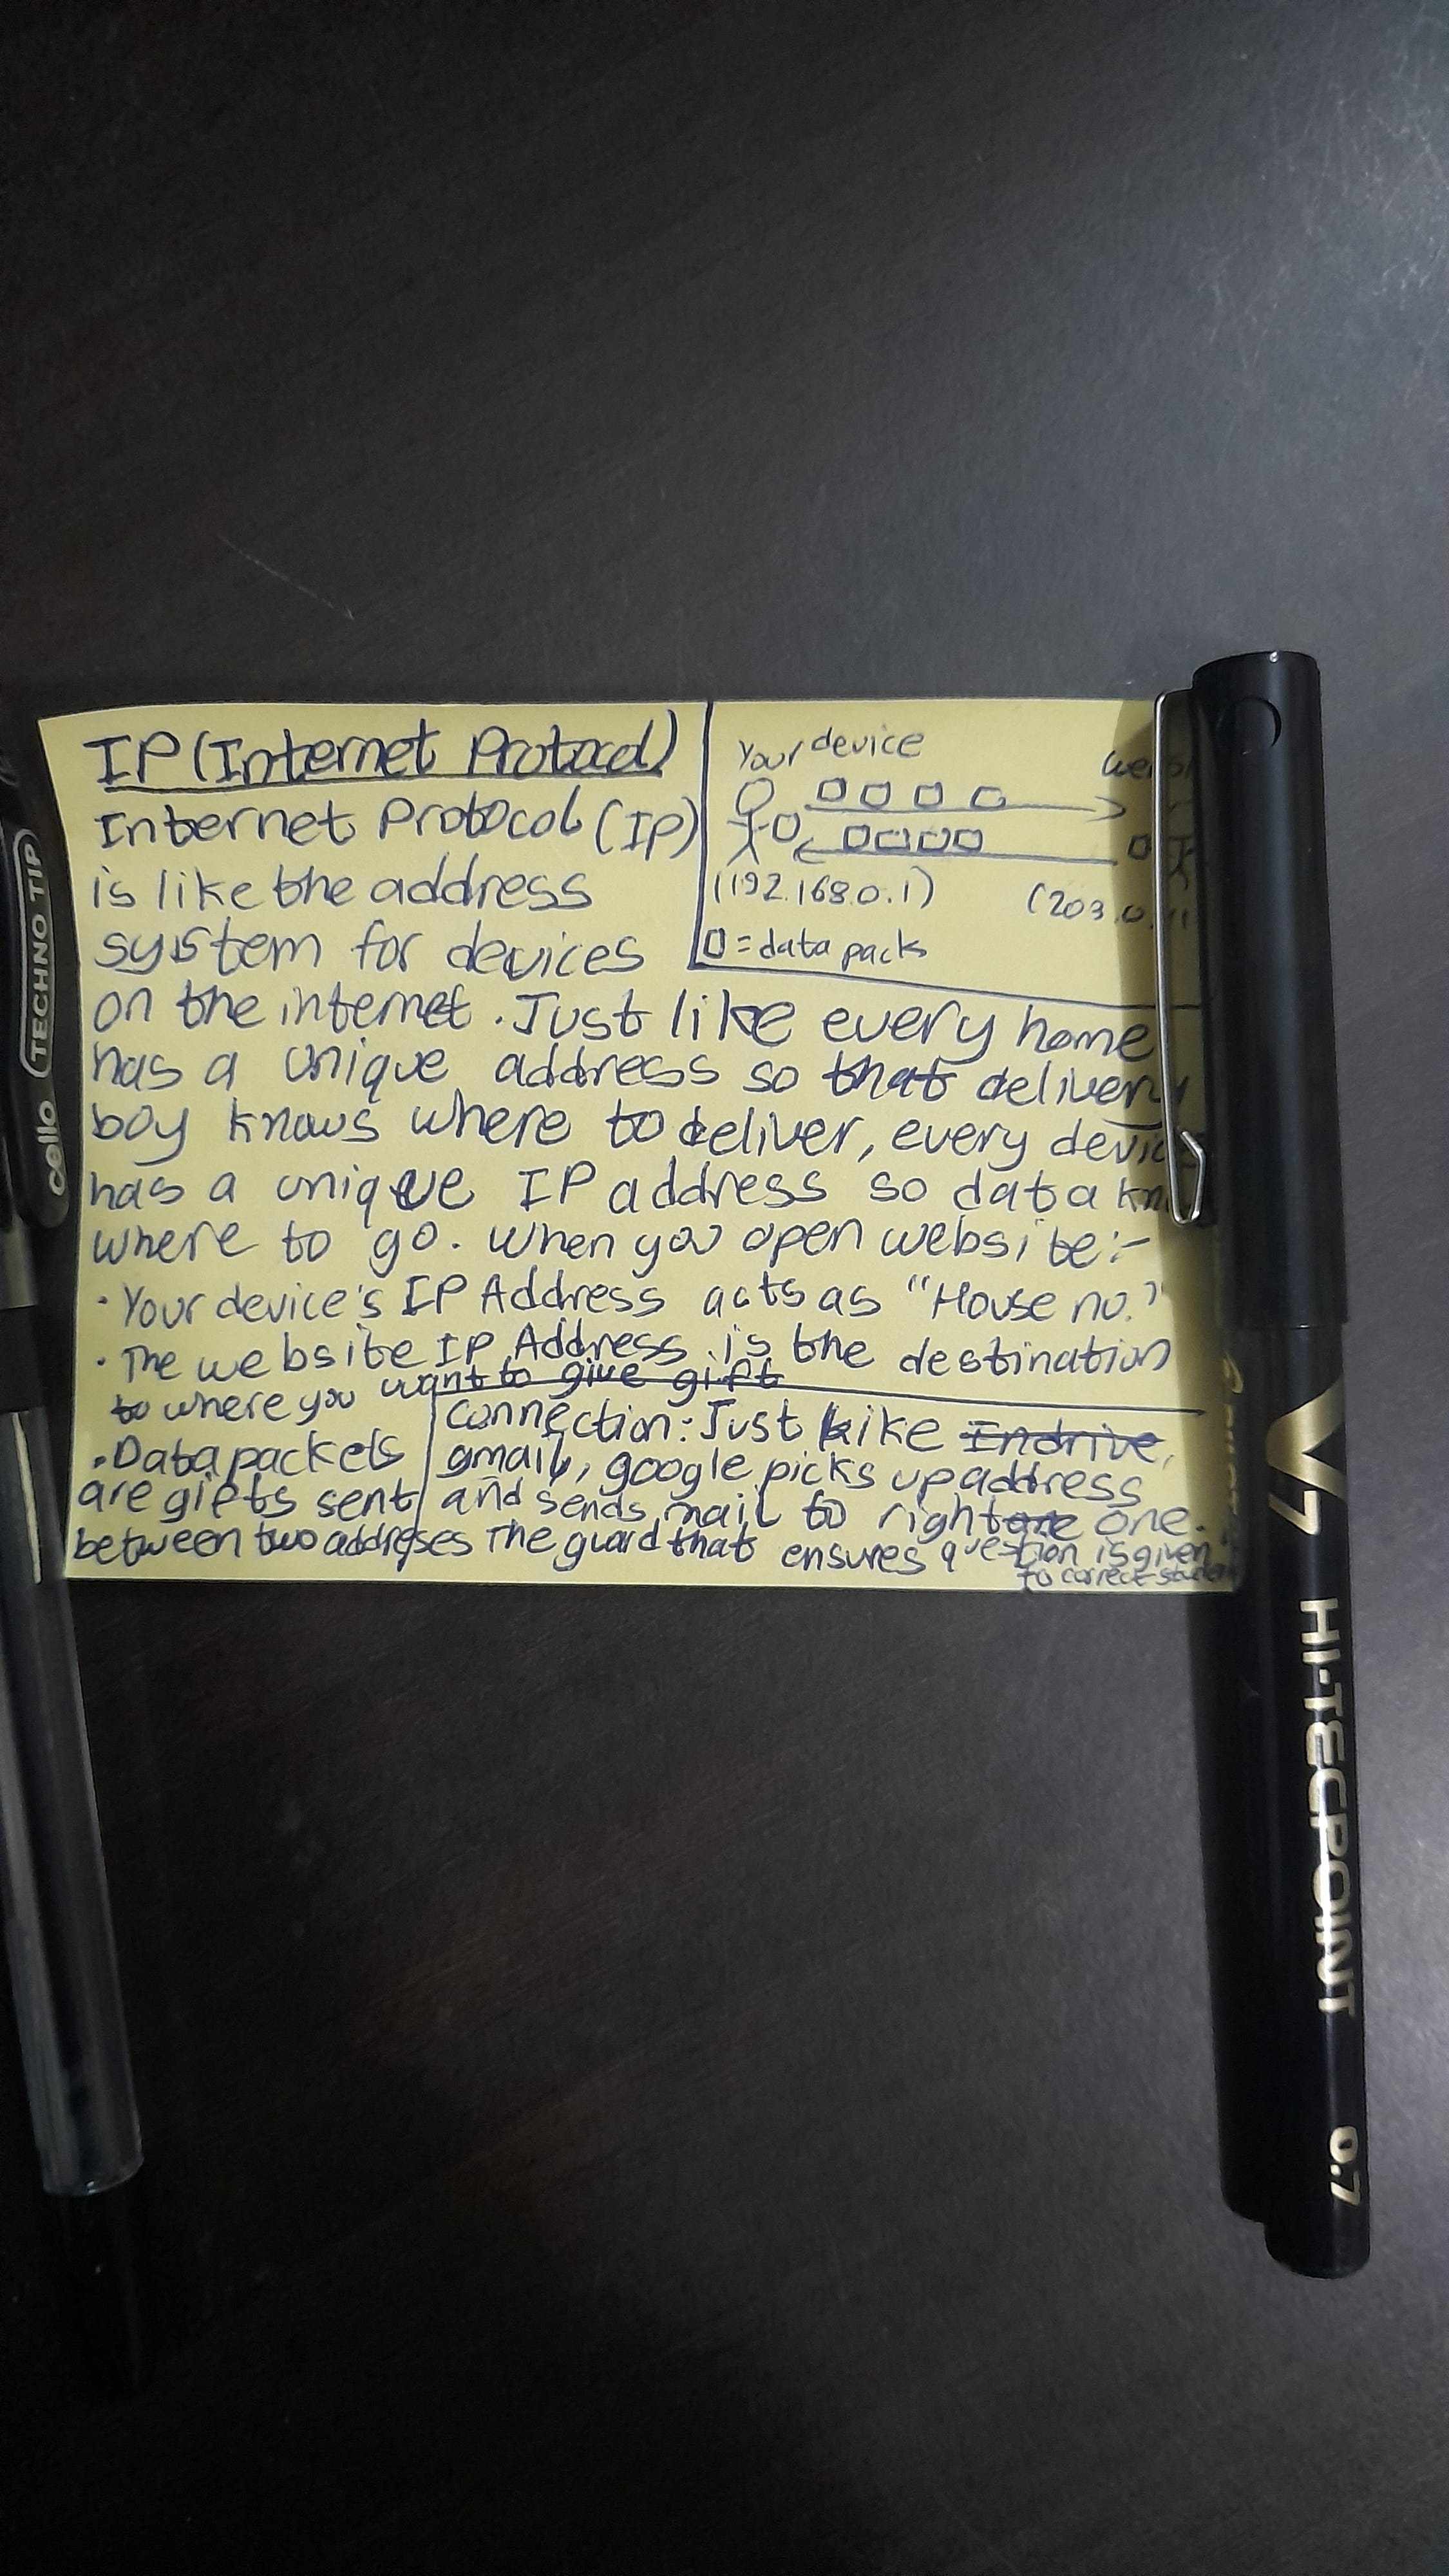 IP (Internet Protocol)
Internet Protocol (IP)
is like the address
system for devices
on the internet. Just like every home
has a unique address so that delivery
boy knows where to deliver, every
has a unique IP address so data
where to go. When you open website:-
· Your device's IP Address acts as "House no."
· The website IP Address is the destination
to where you want to give gift
· Data packets
are gifts sent
between two addreses
Your device
(192.168.0.1)
= data pack
Connection: Just like Indrive,
gmail, google picks up address
and sends mail to right one one.
The guard that ensures question is given
to correct
cello
TECHNO TIP
V7
HI-TECPOINT
0.7